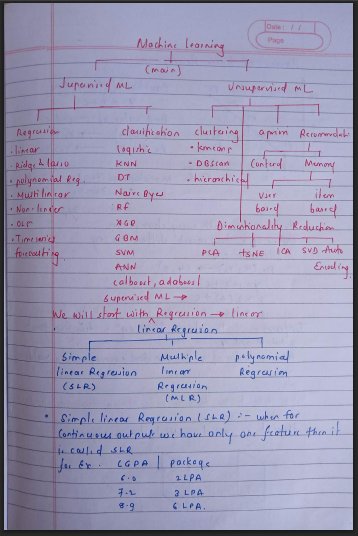 Date: / /
Page
Machine Learning
(main)
Supervised ML Unsupervised ML
Regression classification clustering apriori Recomendati
• linear Logistic • kmeans
• Ridge & lasso KNN • DBscan Content Memory
• polynomial Reg. DT • hierarchical
• Multilinear Naive Byes user item
• Non-linear RF based based
• OLS XGB Dimentionality Reduction
• Timeseries GBM PCA tSNE ICA SVD Auto
forecasting SVM Encoding
ANN
catboost, adaboost
supervised ML →
We will start with Regression → linear
linear Regression
Simple Multiple polynomial
linear Regression linear Regression
(SLR) Regression
(MLR)
• Simple linear Regression (SLR) :- when for
continuous output we have only one feature then it
is called SLR
for Ex. CGPA package
6.0 2 LPA
7.2 3 LPA
8.9 6 LPA.